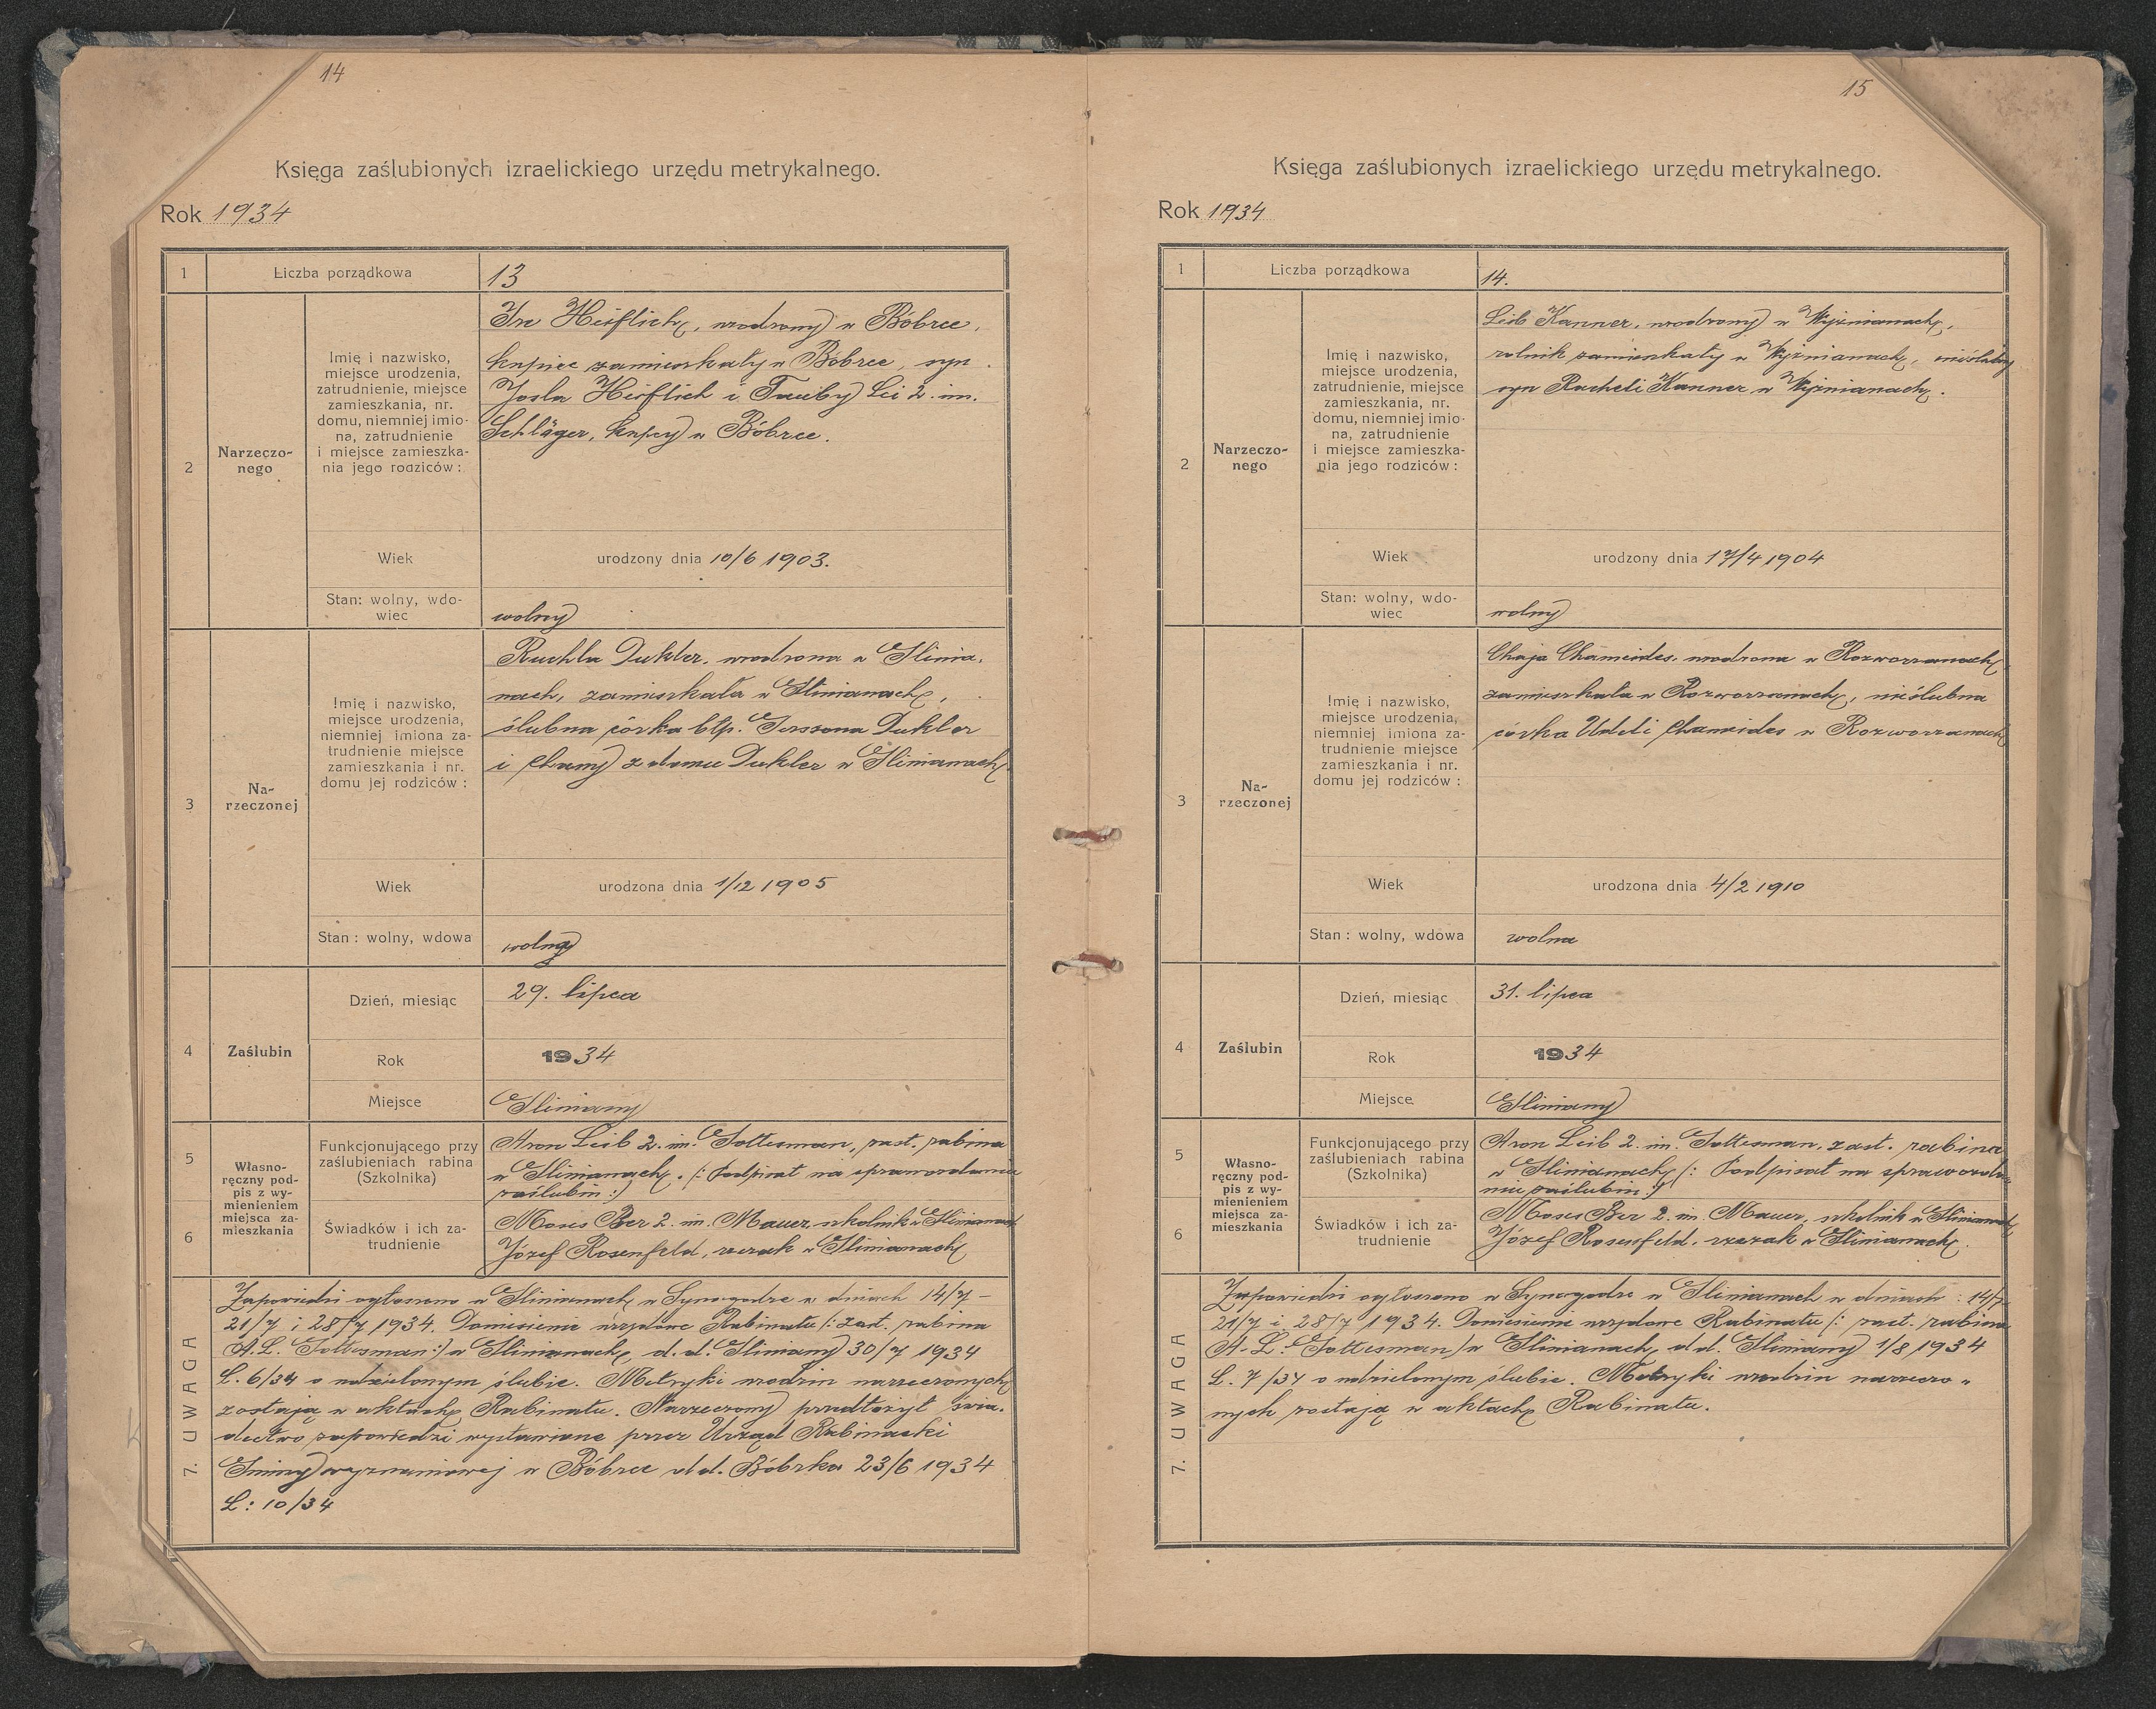 14
Księga zaślubionych izraelickiego urzędu metrykalnego.
Rok 1934
1 Liczba porządkowa 13
2 Narzeczo-
nego
Imię i nazwisko,
miejsce urodzenia,
zatrudnienie, miejsce
zamieszkania, nr.
domu, niemniej imio-
na, zatrudnienie
i miejsce zamieszka-
nia jego rodziców:
Heiflich, urodzony w Bóbrce,
kupiec zamieszkały w Bóbrce, syn
Josla Heiflich i Tauby Lei 2. im.
Schläger, kupcy w Bóbrce.
Wiek urodzony dnia 10/6 1903.
Stan: wolny, wdo-
wiec
wolny
3 Na-
rzeczonej
Imię i nazwisko,
miejsce urodzenia,
niemniej imiona za-
trudnienie miejsce
zamieszkania i nr.
domu jej rodziców:
Ruchla Dukler, urodzona w Glinia-
nach, zamieszkała w Glinianach,
ślubna córka błp. Gerszona Dukler
i Chany z domu Dukler w Glinianach
Wiek urodzona dnia 1/12 1905
Stan: wolny, wdowa wolny
4 Zaślubin
Dzień, miesiąc 29. lipca
Rok 1934
Miejsce Gliniany
Własno-
ręczny pod-
pis z wy-
mienieniem
miejsca za-
mieszkania
5 Funkcjonującego przy
zaślubieniach rabina
(Szkolnika)
Aron Leib 2. im. Gottesman, zast. rabina
w Glinianach. (: Podpisał na sprawozdaniu
zaślubin :)
6 Świadków i ich za-
trudnienie
Moses Ber 2. im. Mauer szkolnik w Glinianach
Józef Rosenfeld, rzezak w Glinianach
7. UWAGA
Zapowiedzi ogłoszono w Glinianach w Synagodze w dniach 14/7 -
21/7 i 28/7 1934. Doniesienie urzędowe Rabinatu (: zast. rabina
A.L. Gottesman :) w Glinianach, d. d. Gliniany 30/7 1934
L. 6/34 o udzielonym ślubie. Metryki urodzin narzeczonych
zostają w aktach Rabinatu. Narzeczony przedłożył świa-
dectwo zapowiedzi wystawione przez Urząd Rabinacki
Gminy wyznaniowej w Bóbrce dd. Bóbrka 23/6 1934
L: 10/34
15
Księga zaślubionych izraelickiego urzędu metrykalnego.
Rok 1934
1 Liczba porządkowa 14.
2 Narzeczo-
nego
Imię i nazwisko,
miejsce urodzenia,
zatrudnienie, miejsce
zamieszkania, nr.
domu, niemniej imio-
na, zatrudnienie
i miejsce zamieszka-
nia jego rodziców:
Leib Kanner, urodzony w Wyżnianach,
rolnik zamieszkały w Wyżnianach, nieślubny
syn Racheli Kanner w Wyżnianach.
Wiek urodzony dnia 17/4 1904
Stan: wolny, wdo-
wiec
wolny
3 Na-
rzeczonej
Imię i nazwisko,
miejsce urodzenia,
niemniej imiona za-
trudnienie miejsce
zamieszkania i nr.
domu jej rodziców:
Chaja Chameides, urodzona w Rozworzanach
zamieszkała w Rozworzanach, nieślubna
córka Udeli Chameides w Rozworzanach
Wiek urodzona dnia 4/2 1910
Stan: wolny, wdowa wolna
4 Zaślubin
Dzień, miesiąc 31. lipca
Rok 1934
Miejsce Gliniany
Własno-
ręczny pod-
pis z wy-
mienieniem
miejsca za-
mieszkania
5 Funkcjonującego przy
zaślubieniach rabina
(Szkolnika)
Aron Leib 2. im. Gottesman, zast. rabina
w Glinianach (: Podpisał na sprawozda-
niu zaślubin :)
6 Świadków i ich za-
trudnienie
Moses Ber 2. im. Mauer, szkolnik w Glinianach
Józef Rosenfeld, rzezak w Glinianach.
7. UWAGA
Zapowiedzi ogłoszono w Synagodze w Glinianach w dniach : 14/7,
21/7 i 28/7 1934. Doniesienie urzędowe Rabinatu (: zast. rabina
A. L. Gottesman) w Glinianach, dd. Gliniany 1/8 1934
L. 7/34 o udzielonym ślubie. Metryki urodzin narzeczo-
nych zostają w aktach Rabinatu.